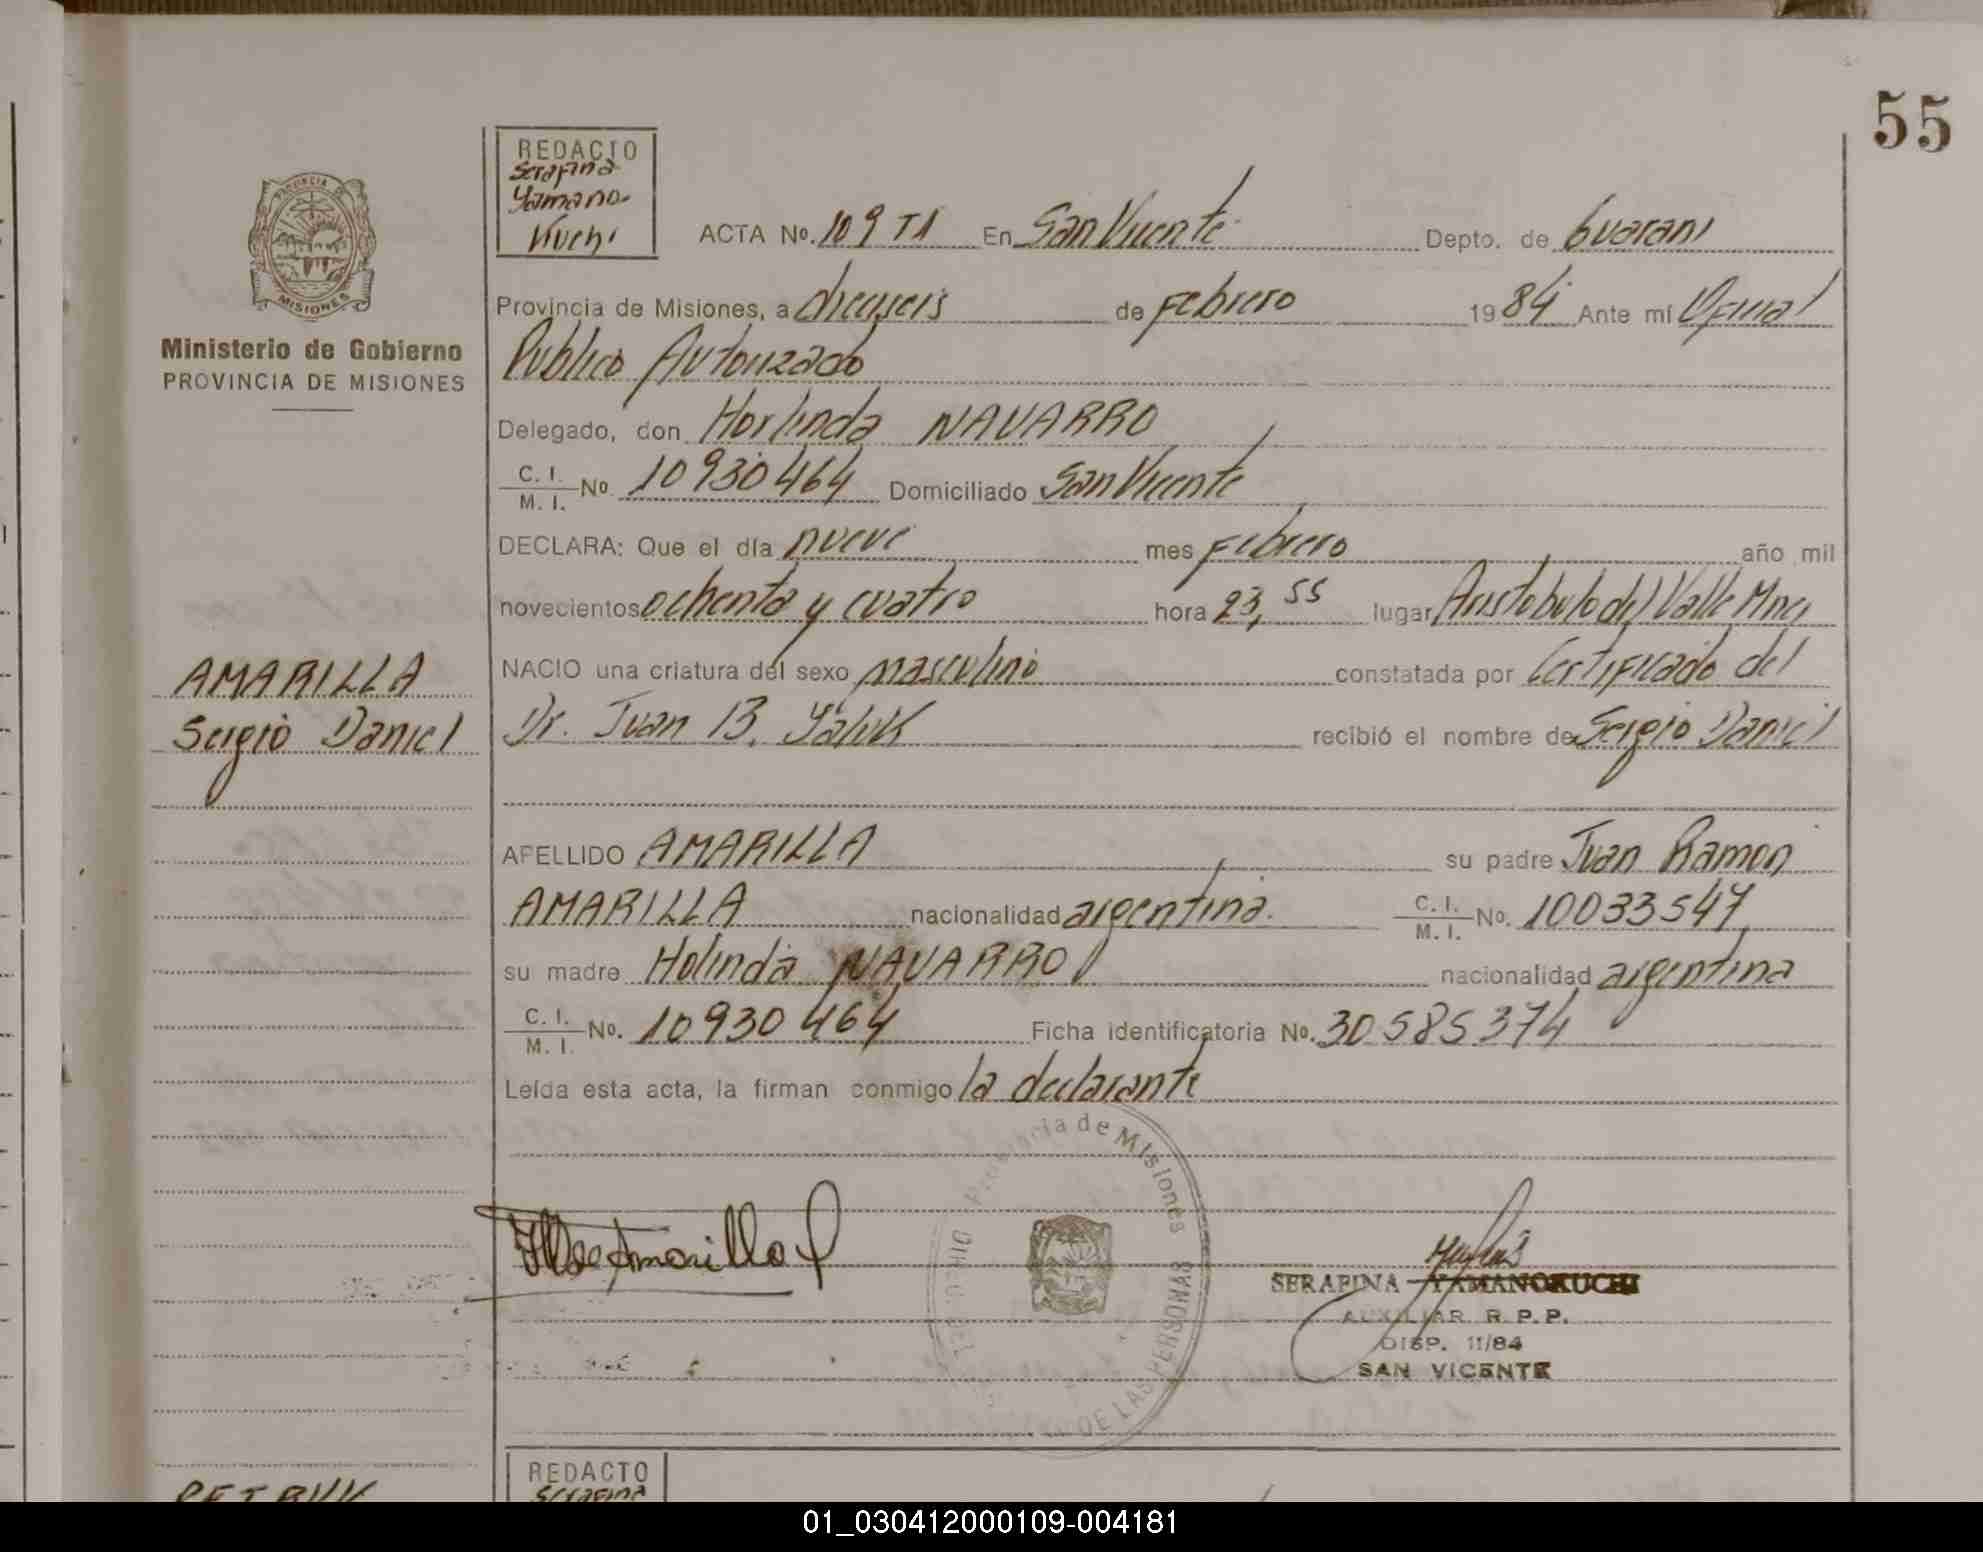 55
REDACTO
Serafina
Yamano-
Kuchi
PROVINCIA DE
MISIONES
Ministerio de Gobierno
PROVINCIA DE MISIONES
ACTA No. 109 T1 En San Vicente Depto. de Guarani
Provincia de Misiones, a dieciseis de Febrero 1984 Ante mí Oficial
Publico Autorizado
Delegado, don Horlinda NAVARRO
C. I. / M. I. No. 10930464 Domiciliado San Vicente
DECLARA: Que el día nueve mes Febrero año mil
novecientos ochenta y cuatro hora 23,55 lugar Aristobulo del Valle Mnes
NACIO una criatura del sexo masculino constatada por Certificado del
Dr. Juan B. recibió el nombre de Sergio Daniel
AMARILLA
Sergio Daniel
APELLIDO AMARILLA su padre Juan Ramon
AMARILLA nacionalidad argentina. C. I. / M. I. No. 10033547
su madre Holinda NAVARRO nacionalidad argentina
C. I. / M. I. No. 10930464 Ficha identificatoria No. 30585374
Leída esta acta, la firman conmigo la declarante
Provincia de Misiones
DE LAS PERSONAS
de Amarilla
SERAFINA YAMANOKUCHI
AUXILIAR R.P.P.
DISP. 11/84
SAN VICENTE
REDACTO
Serafina
01_030412000109-004181